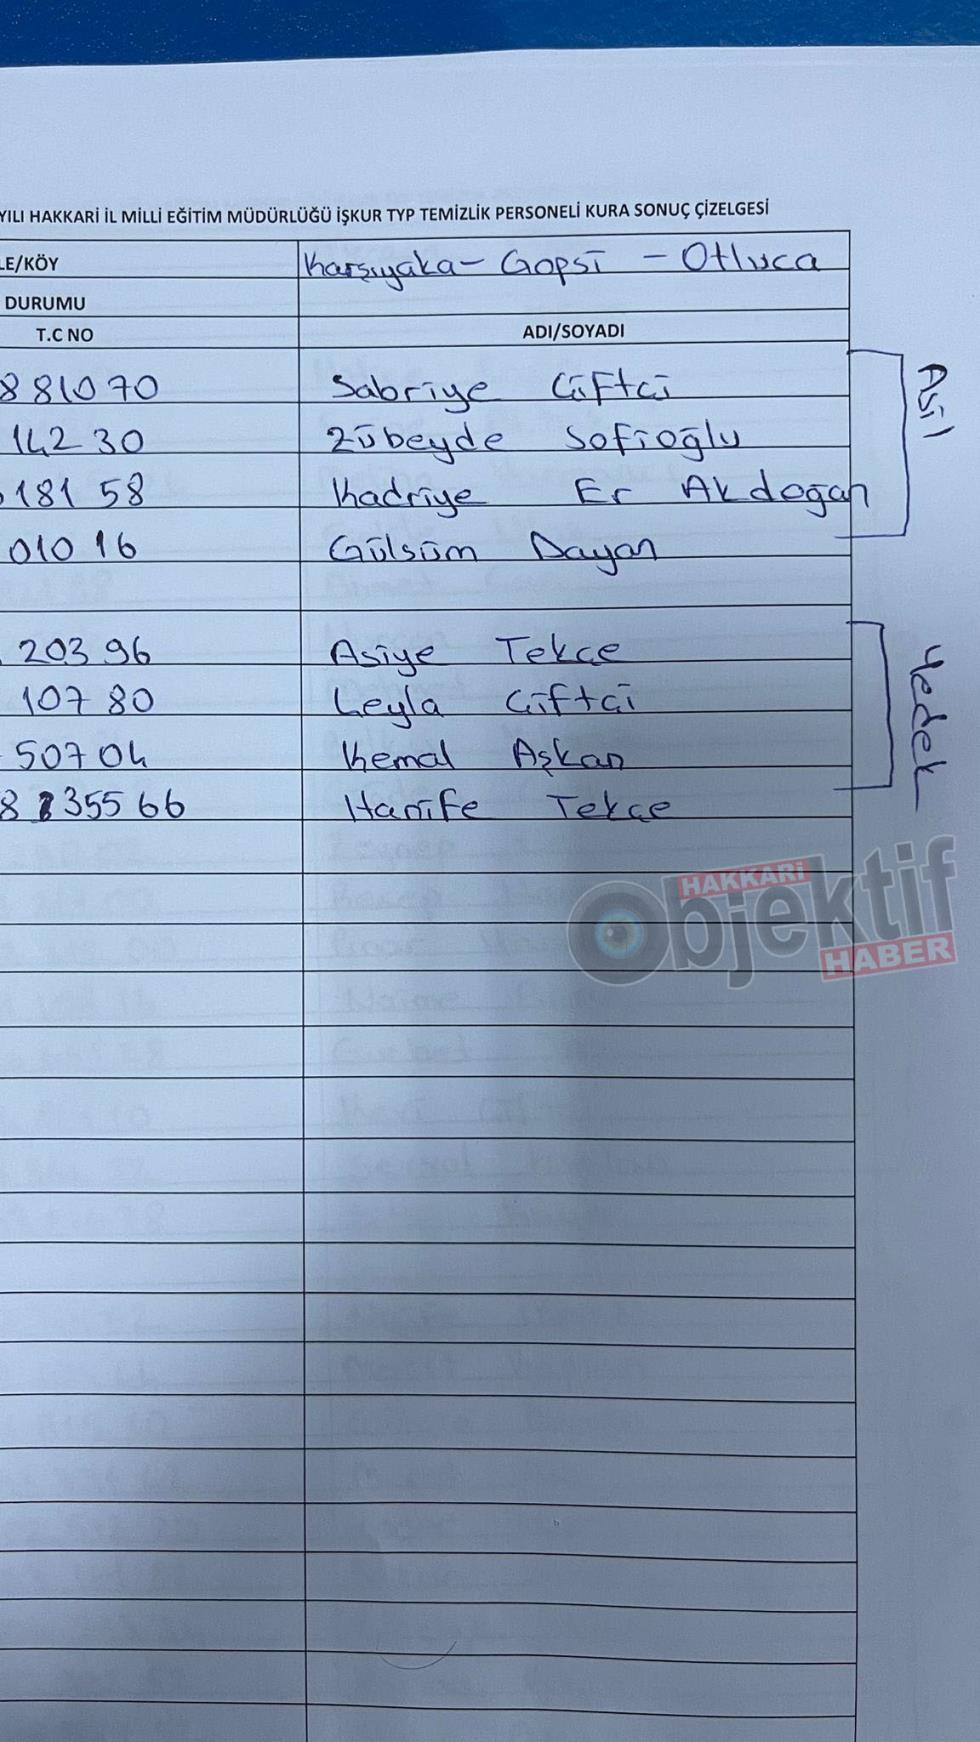 YILI HAKKARİ İL MİLLİ EĞİTİM MÜDÜRLÜĞÜ İŞKUR TYP TEMİZLİK PERSONELİ KURA SONUÇ ÇİZELGESİ
LE/KÖY Karşıyaka - Gopsi - Otluca
DURUMU
T.C NO ADI/SOYADI
881070 Sabriye Çiftçi
14230 Zübeyde Sofioğlu
18158 Kadriye Er Akdoğan
01016 Gülsüm Dayan
Asil
20396 Asiye Tekçe
10780 Leyla Çiftçi
50704 Kemal Aşkan
8 35566 Hanife Tekçe
Yedek
HAKKARİ
Objektif
HABER